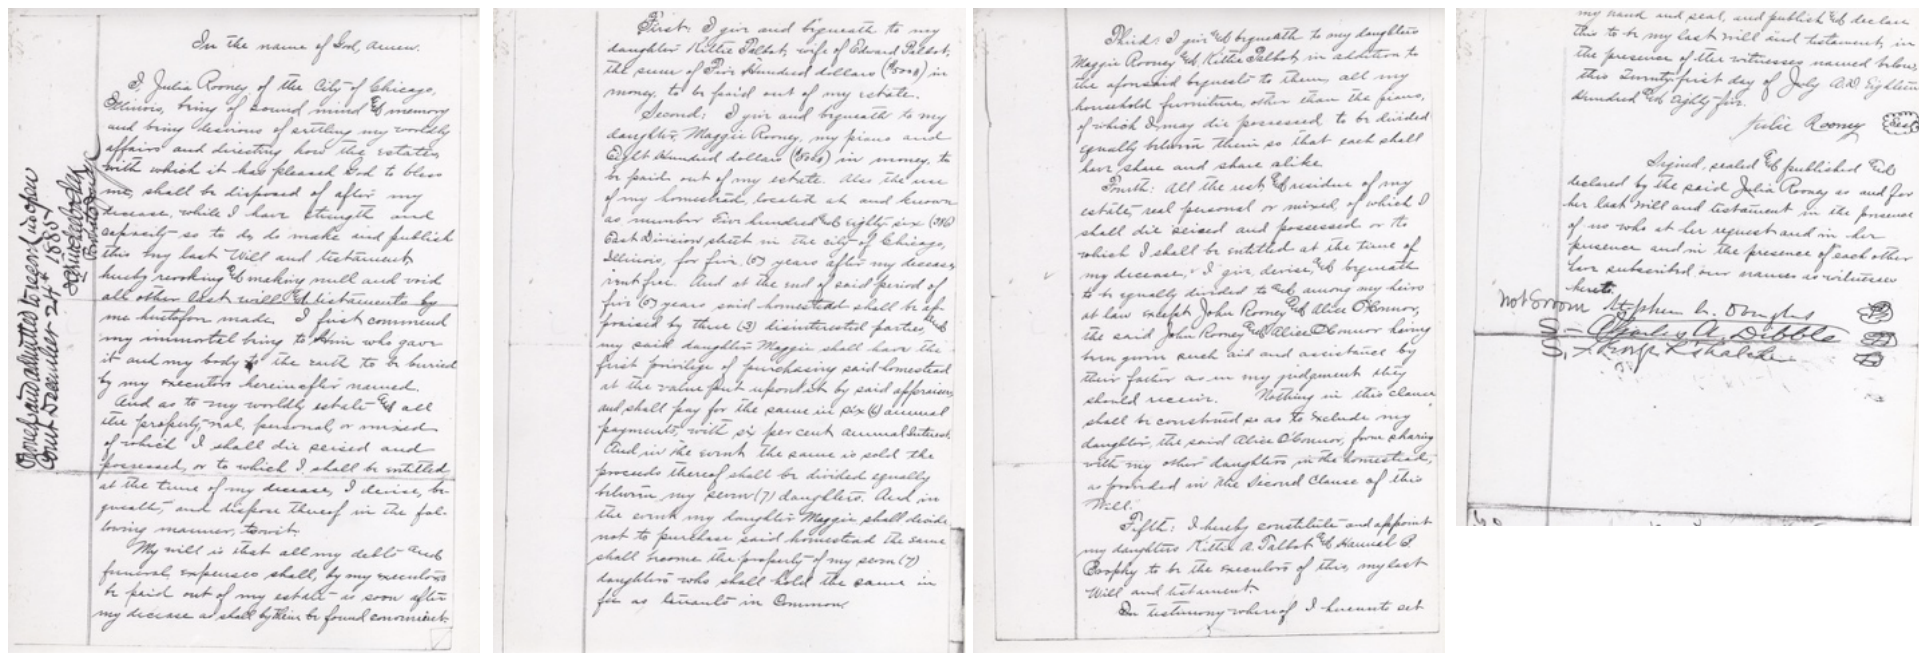 In the name of God, amen.
I, Julia Rooney of the City of Chicago,
Illinois, being of sound mind & memory
and being desirous of settling my worldly
affairs and directing how the estates
with which it has pleased God to bless
me, shall be disposed of after my
decease, while I have strength and
capacity so to do, do make and publish
this my last Will and testament
hereby revoking & making null and void
all other last will & testaments by
me heretofore made. I first commend
my immortal being to Him who gave
it and my body to the earth to be buried
by my executors hereinafter named.
And as to my worldly estate & all
the property, real, personal, or mixed
of which I shall die seised and
possessed, or to which I shall be entitled
at the time of my decease, I devise, be-
queath, and dispose thereof in the fol-
lowing manner, towit.
My will is that all my debts and
funeral expenses shall, by my executors
be paid out of my estate as soon after
my decease as shall by them be found convenient.
Proved and admitted to record in open
Court December 24th 1885
First: I give and bequeath to my
daughter Kittie Talbot, wife of Edward Talbot,
the sum of Five Hundred dollars ($500) in
money, to be paid out of my estate.
Second: I give and bequeath to my
daughter, Maggie Rooney, my piano and
Eight Hundred dollars in money, to
be paid out of my estate. Also the use
of my homestead, located at and known
as number Five hundred & eighty six (586)
East Division street in the city of Chicago,
Illinois, for five (5) years after my decease
rent free. And at the end of said period of
five (5) years, said homestead shall be ap-
praised by three (3) disinterested parties, and
my said daughter Maggie shall have the
first privilege of purchasing said homestead
at the value put upon it by said appraisers
and shall pay for the same in six (6) annual
payments, with six per cent annual interest.
And in the event the same is sold the
proceeds thereof shall be divided equally
between my seven (7) daughters. And in
the event my daughter Maggie shall decide
not to purchase said homestead the same
shall become the property of my seven (7)
daughters who shall hold the same in
fee as tenants in Common.
Third: I give & bequeath to my daughters
Maggie Rooney & Kittie Talbot, in addition to
the aforesaid bequest to them, all my
household furniture, other than the piano,
of which I may die possessed to be divided
equally between them so that each shall
have share and share alike.
Fourth: All the rest & residue of my
estate, real personal or mixed, of which I
shall die seised and possessed or to
which I shall be entitled at the time of
my decease, I give, devise, & bequeath
to be equally divided to & among my heirs
at law except John Rooney & Alice O'Connor,
the said John Rooney & Alice O'Connor having
been given such aid and assistance by
their father as in my judgment they
should receive. Nothing in this clause
shall be construed so as to exclude my
daughter, the said Alice O'Connor, from sharing
with my other daughters, in the homestead,
as provided in the Second Clause of this
Will.
Fifth: I hereby constitute and appoint
my daughters Kittie A. Talbot & Hannah
Brophy to be the executors of this, my last
Will and testament.
In testimony whereof I hereunto set
my hand and seal, and publish & declare
this to be my last will and testament, in
the presence of the witnesses named below,
this Twenty-first day of July A.D. Eighteen
Hundred & Eighty-five.
Julia Rooney Seal
Signed, sealed & published &
declared by the said Julia Rooney as and for
her last will and testament in the presence
of us who at her request and in her
presence and in the presence of each other
have subscribed our names as witnesses
hereto.
Not Sworn Stephen A. Douglas
S - Charles A. Dibble
S.